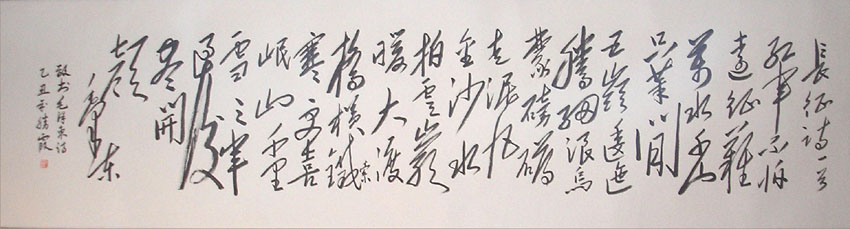 長征詩一首
紅軍不怕
遠征難
萬水千山
只等閒
五嶺逶迤
騰細浪烏
蒙磅礴
走泥丸
金沙水
拍雲巖
暖大渡
橋横鐵索
寒更喜
岷山千里
雪三軍
過後
盡開
顏
毛澤東
敬书毛泽东诗
乙丑年